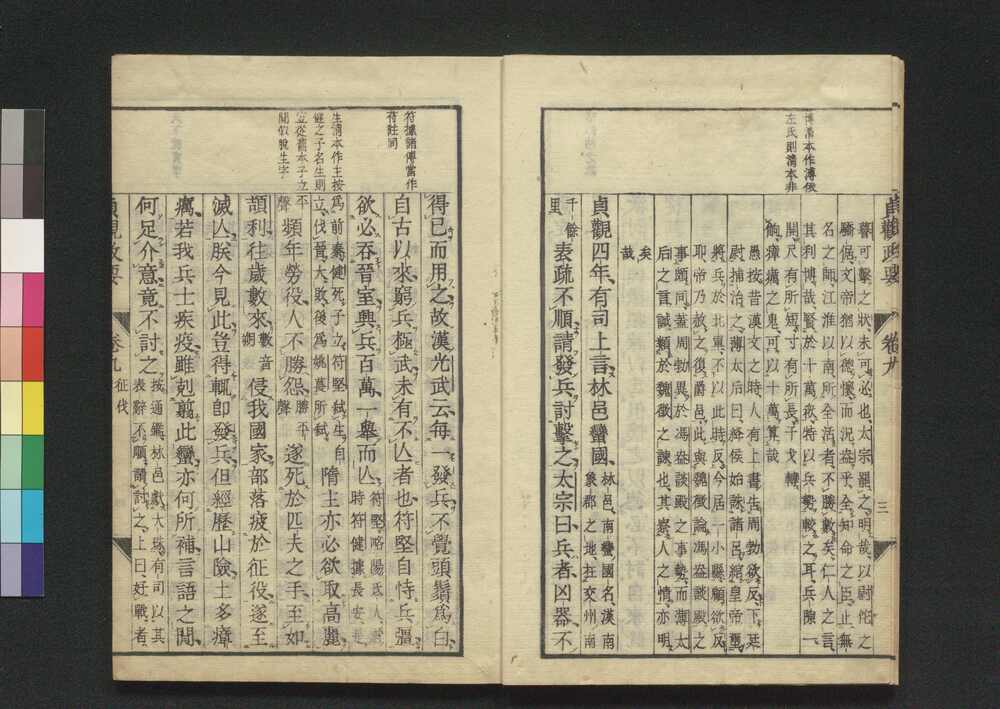 博清本作薄俶
左氏則清本非
暮可擊之狀未可必也太宗謂之明哉以尉佗之
驕倨文帝猶以德懷而況盎乎全知命之臣止無
名之師江淮以南所全活者不勝數矣仁人之言
其利博哉賢於十萬衆特以兵勢較之耳兵隙一
開尺有所短寸有所長干戈
瘴癘之鬼可以十萬算哉
愚按昔漢文之時人有上書告周勃欲反下廷
尉捕治之薄太后曰絳侯始誅諸呂綰皇帝璽
將兵於北軍不以此時反今居一小縣顧欲反
耶帝乃赦之復爵邑此與魏徵論馮盎談殿之
事頗同蓋周勃異於馮盎談殿之事勢而薄太
后之言誠類於魏徵之諫也其察人之情亦明
矣
哉
貞觀四年有司上言林邑蠻國林邑南蠻國名漢南
象郡之地在交州南
千餘
里
表疏不順請發兵討擊之太宗曰兵者凶器不
貞觀政要
卷九
三
符據諸傳當作
苻註同
生清本作主按
健之子名生則
立從舊本子立平
聞似脫生字
得已而用之故漢光武云每一發兵不覺頭鬚爲白
自古以來窮兵極武未有不亾者也符堅自恃兵彊
欲必吞晉室興兵百萬一舉而亾符堅略陽氐人
時符健據長安
爲前秦健死子立符堅弒生自
立伐晉大敗後爲姚萇所弒
隋主亦必欲取高麗
頻年勞役人不勝怨勝平
聲
遂死於匹夫之手至如
頡利往歲數來數音
朔
侵我國家部落疲於征役遂至
滅亾朕今見此豈得輒卽發兵但經歷山險土多瘴
癘若我兵士疾疫雖剋翦此蠻亦何所補言語之閒
何足介意竟不討之按通鑑林邑獻大珠有司以其
表辭不順請討之上曰好戰者
貞觀政要
卷九
征伐